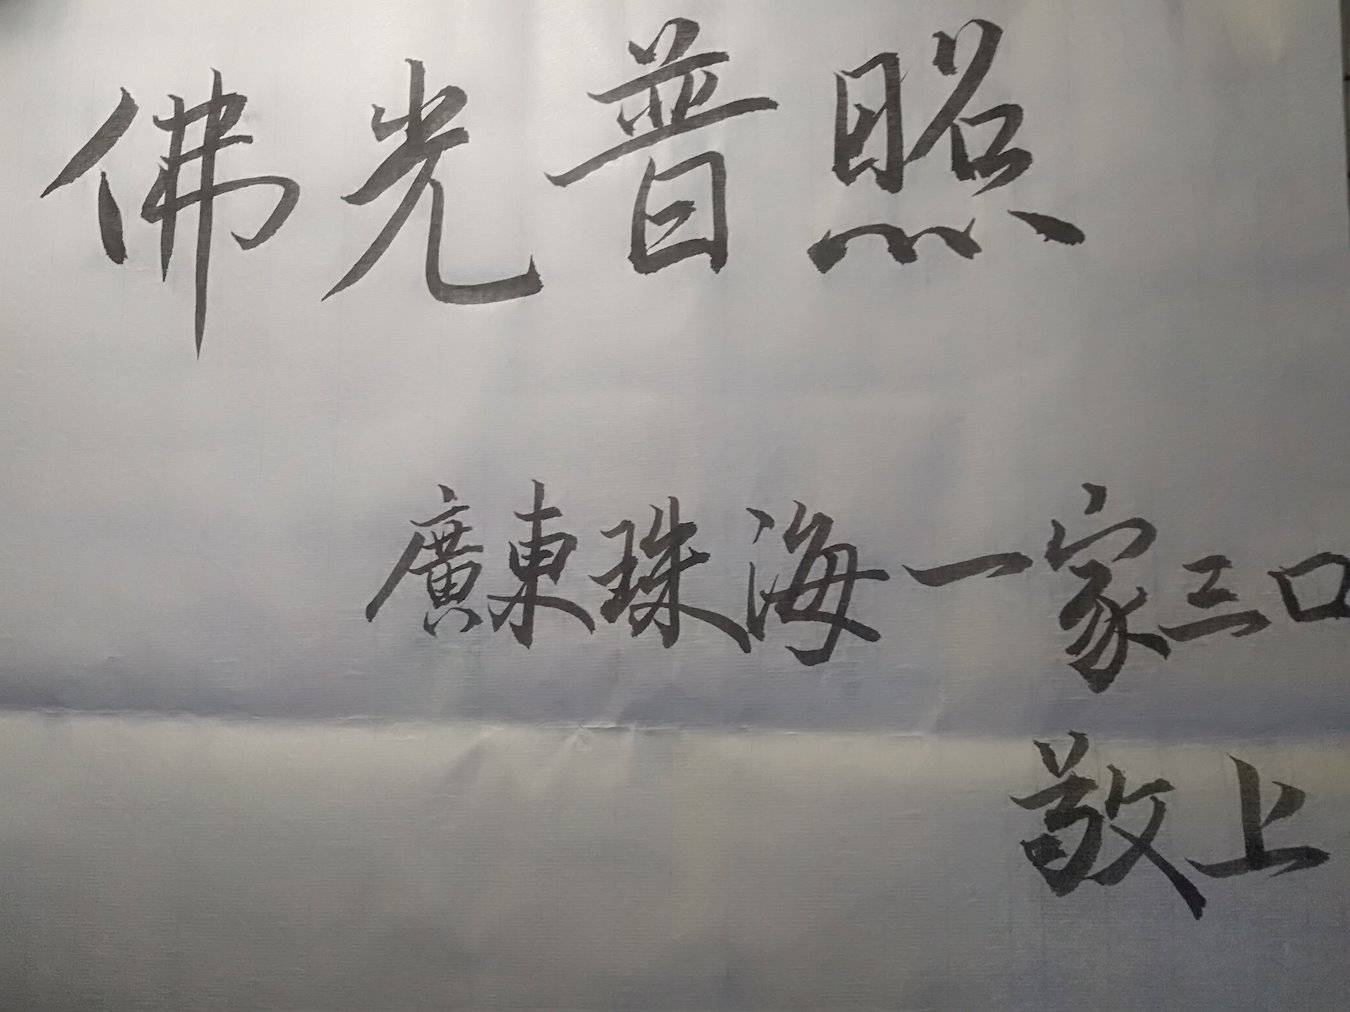 佛光普照
廣東珠海一家三口
敬上